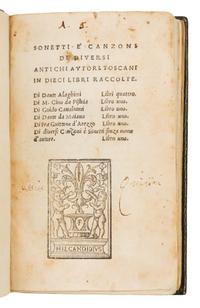 A. 5.
SONETTI E CANZONI
DI DIVERSI
ANTICHI AVTORI TOSCANI
IN DIECI LIBRI RACCOLTE.
Di Dante Alaghieri Libri quattro.
Di M. Cino da Pistoia Libro uno.
Di Guido Caualcanti Libro uno.
Di Dante da Maiano Libro uno.
Di Fra Guittone d'Arezzo Libro uno.
Di diuerse Canzoni e Sonetti senza nome
d'autore. Libro uno.